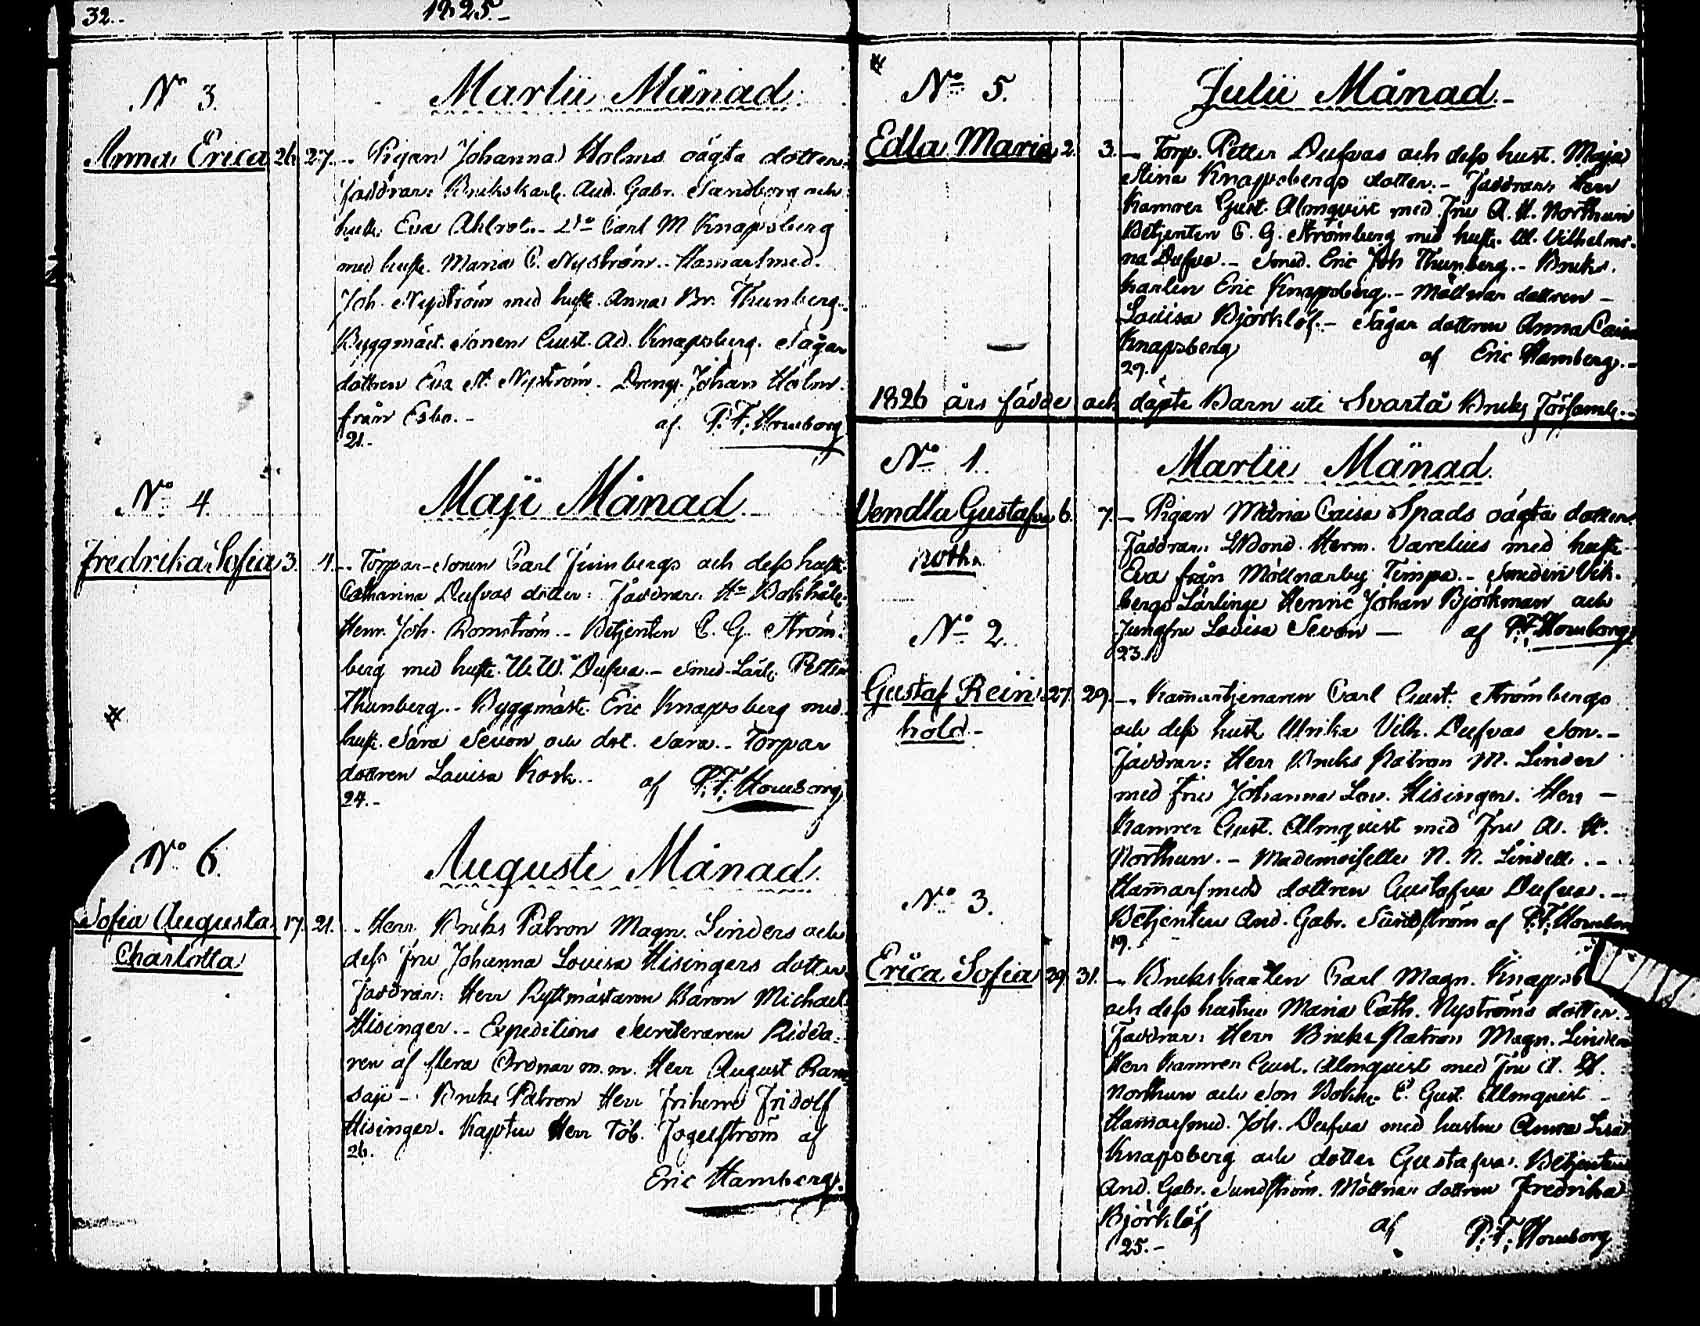 32.
1825.
N:o 3.
Martii Månad.
Anna Erica 26. 27. Pigan Johanna Holms oägta dotter.
faddrar: Brukskarl. And. Gabr. Sandberg och
hustr. Eva Ahlrot. D:o Carl M Knapsberg
med hustr. Maria C. Nyström. Hamarsmed.
Joh. Nyström med hustr. Anna Br. Thunberg.
Byggmäst. Sonen Gust. Ad. Knapsberg. Sågar
dottren Eva St. Nyström. Dreng. Johan Holm.
från Esbo. af P. F. Homborg
21.
N:o 4.
Maji Månad
Fredrika Sofia 3. 4. Torpar-Sonen Carl Junbergs och dess hust.
Catharina Dufvas dotter: Faddrar. Hr Bokhåll.
Henr. Joh. Romström. Betjenten C. G. Ström-
berg med hustr. U. W. Dufva. Smed-Lärl. Petter
Thunberg. Byggmäst. Eric Knapsberg med
hustr. Sara Sevon och dot. Sara. Torpar
dottren Lovisa Kosk. af P. F. Homborg
24.
N:o 6.
Augusti Månad.
Sofia Augusta 17. 21. Herr Bruks Patron Magn. Linders och
Charlotta dess fru Johanna Lovisa Hisingers dotter
Faddrar: Herr Ryttmästaren Baron Michael
Hisinger. Expeditions Secreteraren Ridda-
ren af flera Ordnar m.m. Herr August Ram
say. Bruks Patron Herr Friherre Fridolf
Hisinger. Kapten Herr Tob. Fogelström af
26.
Eric Hamberg.
N:o 5.
Julii Månad.
Edla Maria 2. 3. Torp. Petter Dufvas och dess hust. Maja
Stina Knapsbergs dotter. Faddrar Herr
Kamrer Gust. Almqvist med Fru A. H. Northun
Betjenten C. G. Strömberg med hustr. U. Vilhelmi-
na Dufva. Smed. Eric Joh Thunberg. Bruks.
karlen Eric Knapsberg. Möllnar dottren
Lovisa Björklöf. Sågar dottren Anna Caisa
Knapsberg af Eric Hamberg.
29.
1826 års födde och döpte Barn uti Svartå Bruks Församl.
N:o 1.
Martii Månad.
Vendla Gustafva 6. 7. Pigan Maria Caisa Spads oägta dotter.
Faddrar: Herm. Varelius med hustr
Eva från Möllnarby Timpa. Smeden Vik-
bergs Lärlinge Henric Johan Björkman och
Jungfru Lovisa Sevon af P. F. Homborg
23.
N:o 2.
Gustaf Rein 27. 29. Kamartjenaren Carl Gust. Strömbergs
hold. och dess hust Ulrika Vilh. Dufvas Son.
Faddrar: Herr Bruks Patron M. Linder
med fru Johanna Lov. Hisinger. Herr
Kamrer Gust. Almqvist med Fru A. H.
Northun. Mademoiselle N. N. Lindell.
Hamarsmed dottren Gustafva Dufva.
Betjenten And. Gabr. Sundström af P. F. Homborg
19.
N:o 3.
Erica Sofia 29. 31. Brukskarlen Carl Magn. Knaps
och dess hustru Maria Cath. Nyströms dotter.
Faddrar: Herr Bruks Patron Magn. Linder
Herr Kamrer Gust. Almqvist med Fru A. H.
Northun och Son Bokh. C. Gust. Almqvist
Hamarsmed. Joh. Dufva med hustru Anna Lisa
Knapsberg och dotter Gustafva. Betjenten
And. Gabr. Sundström. Möllnar dottren Fredrika
Björklöf af P. F. Homborg
25.